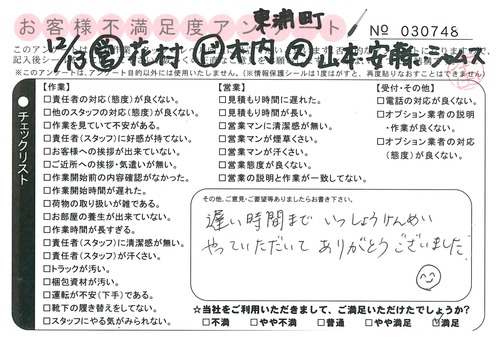 東浦町
お客様不満足度アンケート
No 030748
12/13 営 花村 ド 木内 ス 山本 安藤 ジェームス
※このアンケートは、アンケート目的以外には使用いたしません。(※情報保護シールは1度はがすと、再度貼りなおすことはできません)
チェックリスト
【作業】
□責任者の対応(態度)が良くない。
□他のスタッフの対応(態度)が良くない。
□作業を見ていて不安がある。
□責任者(スタッフ)に好感が持てない。
□お客様への挨拶が出来ていない。
□ご近所への挨拶・気遣いが無い。
□作業開始前の内容確認がなかった。
□作業開始時間が遅れた。
□荷物の取り扱いが雑である。
□お部屋の養生が出来ていない。
□作業時間が長すぎる。
□責任者(スタッフ)に清潔感が無い。
□責任者(スタッフ)が汗くさい。
□トラックが汚い。
□梱包資材が汚い。
□運転が不安(下手)である。
□靴下の履き替えをしてない。
□スタッフにやる気がみられない。
【営業】
□見積もり時間に遅れた。
□見積もり時間が長い。
□営業マンに清潔感が無い。
□営業マンが煙草くさい。
□営業マンが汗くさい。
□営業態度が良くない。
□営業の説明と作業が一致してない。
【受付・その他】
□電話の対応が良くない。
□オプション業者の説明
・作業が良くない。
□オプション業者の対応
(態度)が良くない。
その他、ご意見・ご要望等ありましたらお書き下さい。
遅い時間まで いっしょうけんめい
やっていただいて ありがとうございました
☆当社をご利用いただきまして、ご満足いただけたでしょうか?
□不満 □やや不満 □普通 □やや満足 ☑満足